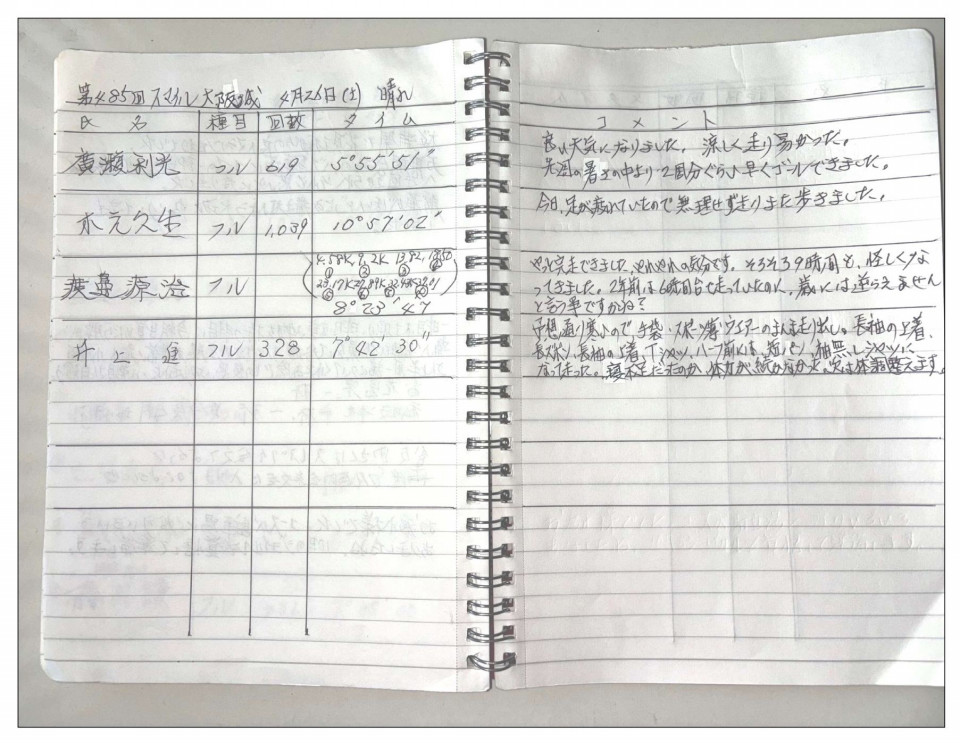 第485回 スマイル大阪城 4月26日(土) 晴れ
氏 名 種目 回数 タイム
廣瀬 光 フル 619 5°55'51"
木元久生 フル 1,039 10°57'02"
源治 フル
4.58K, 9.2K 13.82,
① ② ③ ④
8°23'47
井上 進 フル 328 7°42'30"
コメント
良い天気になりました。涼しく走り易かった。
先週の暑さの中より、2回分ぐらい早くゴールできました。
今日、足が痛れていたので無理せず走りまた歩きました。
やっと完走できました、やれやれの気分です。そろそろ9時間も、怪しくなっ
てきました。2年前は6時間台で走っていたのに、歳には逆らえません
と言う事ですかね?
予想通り寒いので、手袋・ ウェアーのまま走り出し。長袖の上着、
長ズボン、長袖の上着、Tシャツ、ハーフ前には、短パン、袖無しシャツに
なって走った。寝不足だったのか、体力が続かなかった。次は体調整えます。